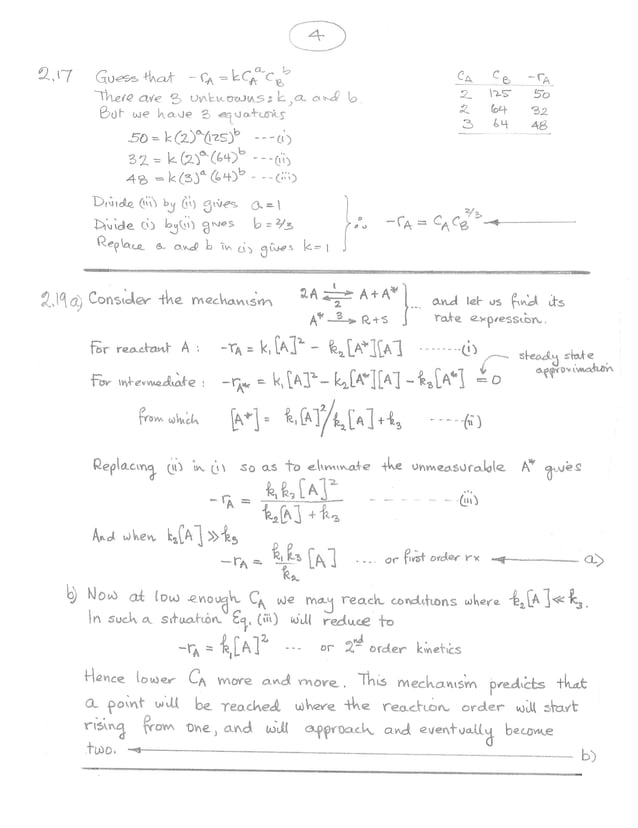 4
2.17 Guess that -rA = kCA^a CB^b
There are 3 unknowns: k, a and b.
But we have 3 equations
CA CB -rA
2 125 50
2 64 32
3 64 48
50 = k(2)^a (125)^b ---(i)
32 = k(2)^a (64)^b ---(ii)
48 = k(3)^a (64)^b ---(iii)
Divide (iii) by (ii) gives a=1
Divide (i) by (ii) gives b=2/3
Replace a and b in (i) gives k=1
∴ -rA = CA CB^2/3
2.19 a) Consider the mechanism 2A ⇌ A+A* (1, 2)
A* →3 R+S ... and let us find its
rate expression.
For reactant A: -rA = k1[A]² - k2[A*][A] .......(i)
steady state
approximation
For intermediate: -rA* = k1[A]² - k2[A*][A] - k3[A*] = 0
from which [A*] = k1[A]²/k2[A]+k3 -----(ii)
Replacing (ii) in (i) so as to eliminate the unmeasurable A* gives
-rA = k1k3[A]² / k2[A] + k3 ---------(iii)
And when k2[A] ≫ k3
-rA = k1k3/k2 [A] .... or first order rx a)
b) Now at low enough CA we may reach conditions where k2[A] ≪ k3.
In such a situation Eq. (iii) will reduce to
-rA = k1[A]² ... or 2nd order kinetics
Hence lower CA more and more. This mechanism predicts that
a point will be reached where the reaction order will start
rising from one, and will approach and eventually become
two. b)